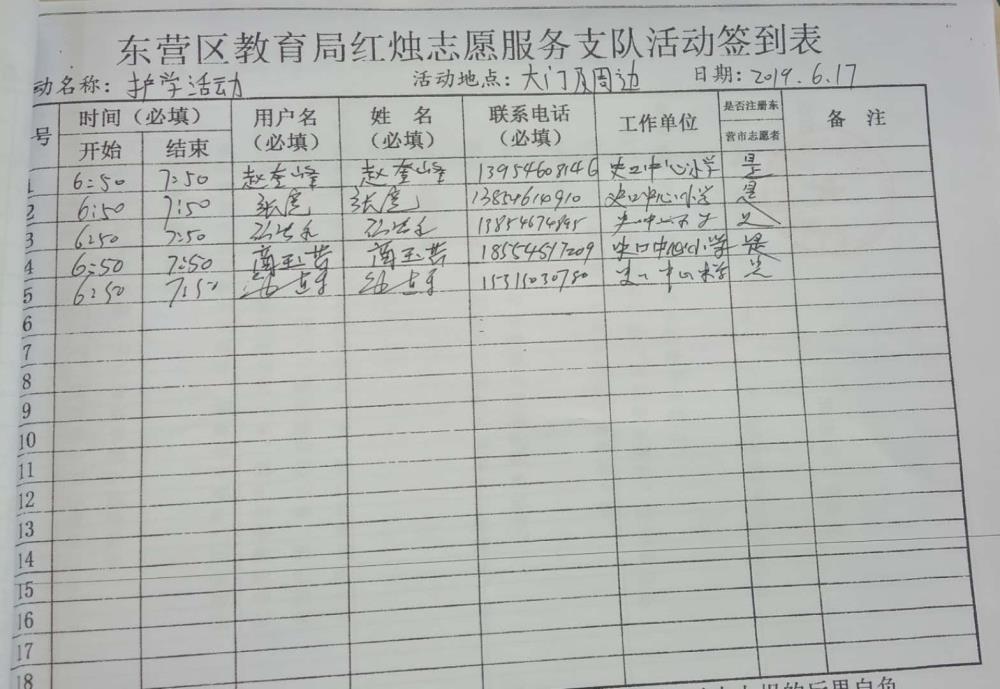 东营区教育局红烛志愿服务支队活动签到表
动名称：护学活动 活动地点：大门及周边 日期：2019.6.17
号 时间（必填） 用户名（必填） 姓 名（必填） 联系电话（必填） 工作单位 是否注册东营市志愿者 备 注
开始 结束
1 6:50 7:50 赵奎峰 赵奎峰 13954608146 史口中心小学 是
2 6:50 7:50 张 张 13854614910 史口中心小学 是
3 6:50 7:50 13854674895
4 6:50 7:50 18554517209 史口中心小学 是
5 6:50 7:50 15315030780 是
6
7
8
9
10
11
12
13
14
15
16
17
18